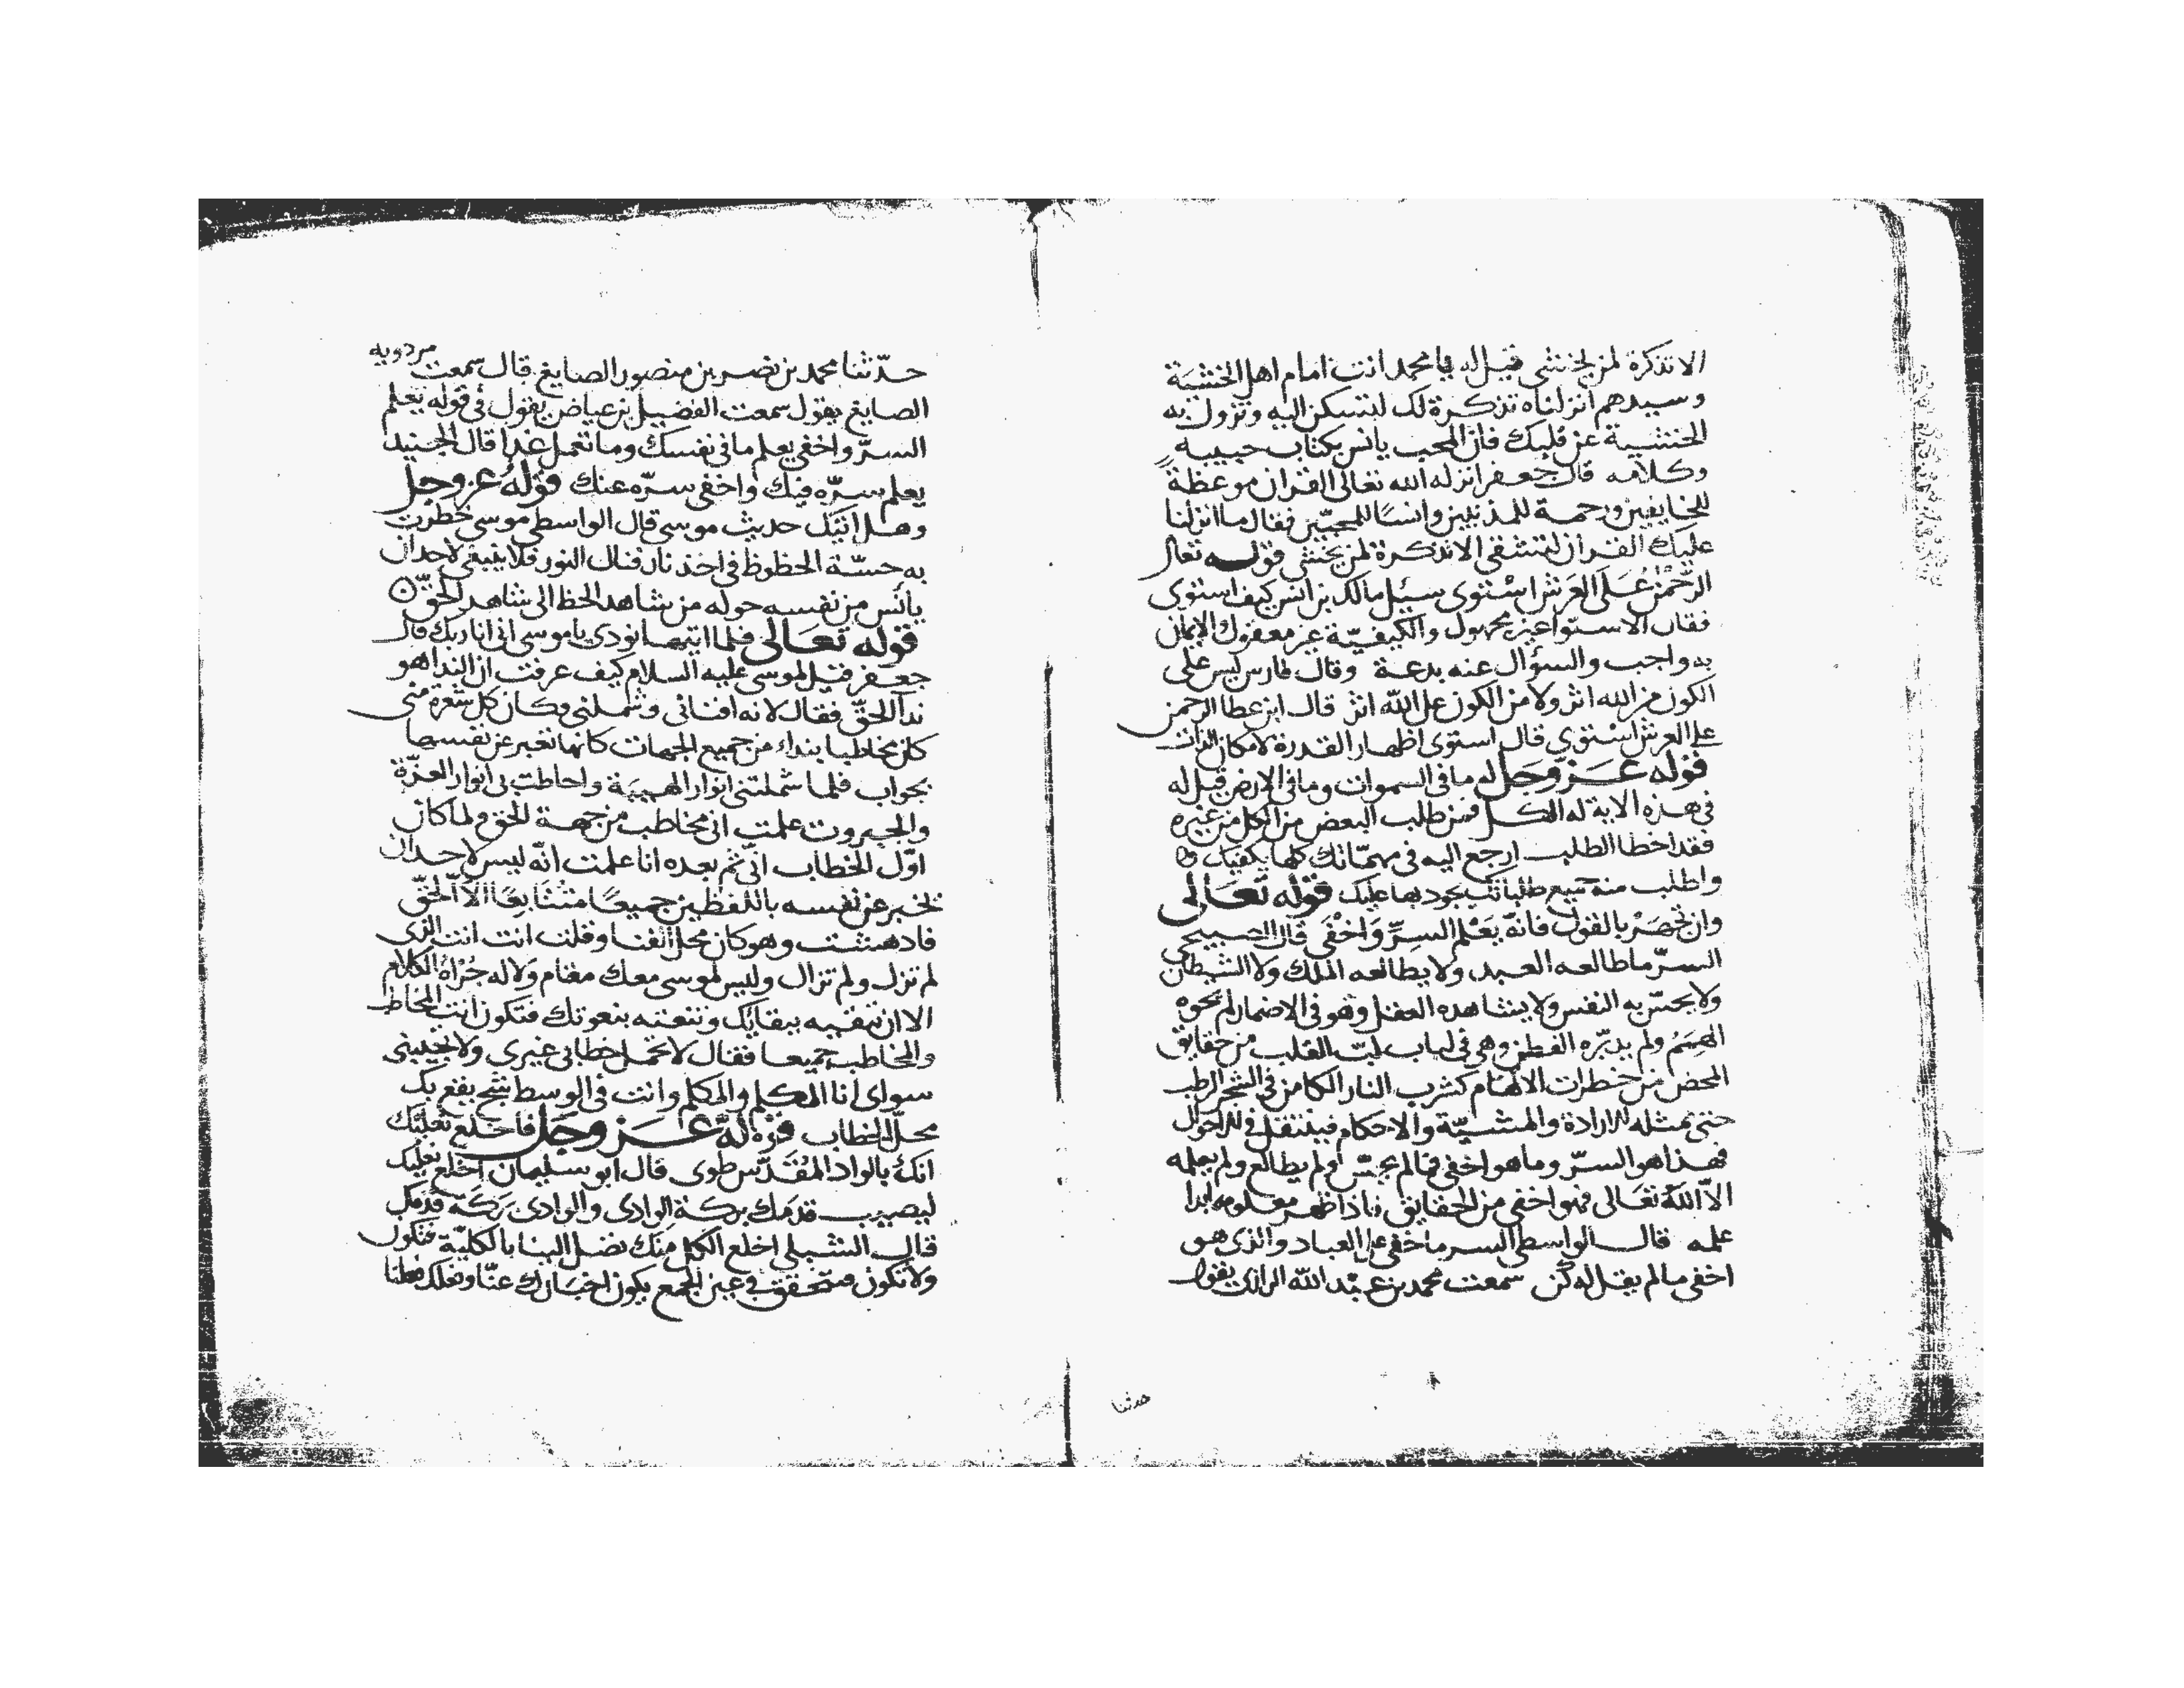 الا تذكرة لمن يخشى قيل له يا محمد انت امام اهل الخشية
وسيدهم انزلناه تذكرة لك لتسكن اليه وتزول به
الخشية عن قلبك فان المحب يانس بكتاب حبيبه
وكلامه قال جعفر انزله الله تعالى القران موعظة
للخايفين ورحمة للمذنبين وانسًا للمحبّين فقال ما انزلنا
عليك القران لتشقى الا تذكرة لمن يخشى قوله تعالى
الرّحمنُ عَلَى العَرش اسْتوى سئيل مالك بن انس كيف استوى
فقال الاستوا غير مجهول والكيفيّة غير معقول الايمان
به واجب والسؤال عنه بدعة وقال فارس ليس على
الكون من الله اثر ولا من الكون على الله اثر قال ابن عطا الرحمن
على العرش استوى قال استوى اظهار القدرة لا مكان الذات
قوله عَزّوجَل له ما فى السموات وما فى الارض قيل له
فى هذه الاية له الكل فمن طلب البعض من الكل من غيره
فقد اخطا الطلب ارجع اليه فى مهمّاتك كلها يكفيك
واطلب منه جميع طلباتك يجود بها عليك قوله تَعَالى
وان تجهَرْ بالقول فانّه يَعْلم السِرَّ وَاخْفَى قال
السرّ ما طالعه العبد ولا يطالعه الملك ولا الشيطان
ولا يحسّ به النفس ولا يشاهده العقل وهو فى الاضمار لم تحوه
الهِمَمُ ولم يدبّره الفطن وهى فى لباب لبّ القلب من حقايق
المحض من خطرات الالهام كشرب النار الكامن فى الشجر الرطب
حتى تمثله الارادة والمشيّة والاحكام فينتقل فى الاحوال
فهذا هو السرّ وما هو اخفى فما لم يحسّ او لم يطالع ولم يعلمه
الاّ اللهُ تعَالى فهو اخفى من الحقايق فاذا ظهر معلومه ابدا
علمه قال الواسطى السر ما خفى على العباد والذى هو
اخفى ما لم يقل له كُن سمعت محمد بن عبد الله الرازى يقول
حدثنا
حدّثنا محمد بن نصر بن منصور الصايغ قال سمعت مردويه
الصايغ يقول سمعت الفضيل بن عياض يقول فى قوله يعلم
السرّ واخفى يعلم ما فى نفسك وما تعمل غدا قال الجنيد
يعلم سرّه فيك واخفى سرّه عنك قوله عز وجل
وهل اتيك حديث موسى قال الواسطى موسى خطرت
به حسّة الحظوظ فى اخذ نار فنال النور فلا ينبغى لاحد ان
يأنَس من نفسه حوله من شاهد الحظ الى شاهد الحقّ
قوله تعَالى فلما اتيها نودى يا موسى انى انا ربك قال
جعفر قيل لموسى عليه السلام كيف عرفت ان الندا هو
ندآ الحقّ فقال لانه افنانى وشملنى وكان كل شعرة منى
كان مخاطبا بنداء من جميع الجهات كانها تعبر عن نفسها
بجواب فلما شملتنى انوار الهيبة واحاطت بى انوار العزّة
والجبروت علمت انى مخاطب من جهة الحق ولما كان
اوّل الخطاب انّى ثم بعده انا علمت انّه ليس لاحد ان
يخبر عن نفسه باللفظين جميعًا متتابعًا الاّ الحقّ
فادهشت وهو كان محل الفنا وقلت انت انت الذى
لم تزل ولم تزال وليس لموسى معك مقام وَلا له جُرْأة الكلام
الا ان تبقيه ببقايك وتنعته بنعوتك فتكون انت المخاطِب
والمخاطب جميعا فقال لا تحمل خطابى غيرى ولا يجيبنى
سواى انا المكلم والمكلم وانت فى الوسط شبح يقع بك
محلّ الخطاب قوله عَز وجَل فاخلع نعليك
انكَ بالواد المُقَدّس طوى قال ابو سليمان اخلع نعليك
ليصيب قدمك بركة الوادى والوادى بركة قدمك
قال الشبلى اخلع الكل منك تصل الينا بالكلّية فتكون
ولا تكون فتتحقق فى عين الجمع يكون اخبَارك عنّا وفعلك فعلنا